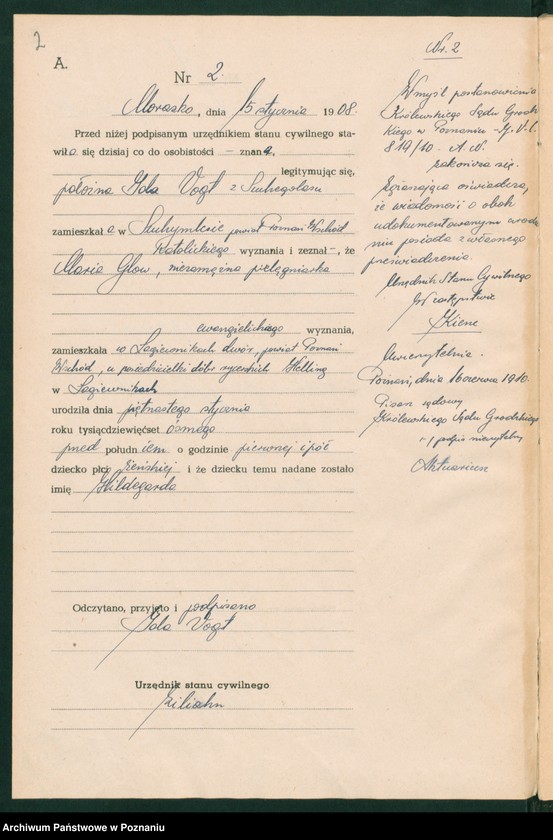 2
A.
Nr 2.
Morasko, dnia 15 stycznia 1908.
Przed niżej podpisanym urzędnikiem stanu cywilnego sta-
wiła się dzisiaj co do osobistości – znana,
legitymując się,
położna Ida Vogt z Suchegolasu
zamieszkała w Suchymlesie powiat Poznań Wschód
Katolickiego wyznania i zeznał –, że
Maria Glow, niezamężna pielęgniarka
ewangielickiego wyznania,
zamieszkała w Łagiewnikach dwór, powiat Poznań
Wschód, u posiedzicielki dóbr rycerskich Helling
w Łagiewnikach
urodziła dnia piętnastego stycznia
roku tysiącdziewięćset ósmego
przed południem o godzinie pierwszej i pół
dziecko płci żeńskiej i że dziecku temu nadane zostało
imię Hildegarda
Odczytano, przyjęto i podpisano
Ida Vogt
Urzędnik stanu cywilnego
Nr. 2
W myśl postanowienia
Królewskiego Sądu Grodz-
kiego w Poznaniu
819/10.
zeznająca oświadcza,
że wiadomość o obok
udokumentowanym urodze-
niu posiada z własnego
przeświadczenia.
Urzędnik Stanu Cywilnego
W zastępstwie
Kiene
Uwierzytelnia.
Poznań, dnia 1 czerwca 1910.
Pisarz sądowy
Królewskiego Sądu Grodzkiego
+ / podpis nieczytelny
Aktuariusz
Archiwum Państwowe w Poznaniu